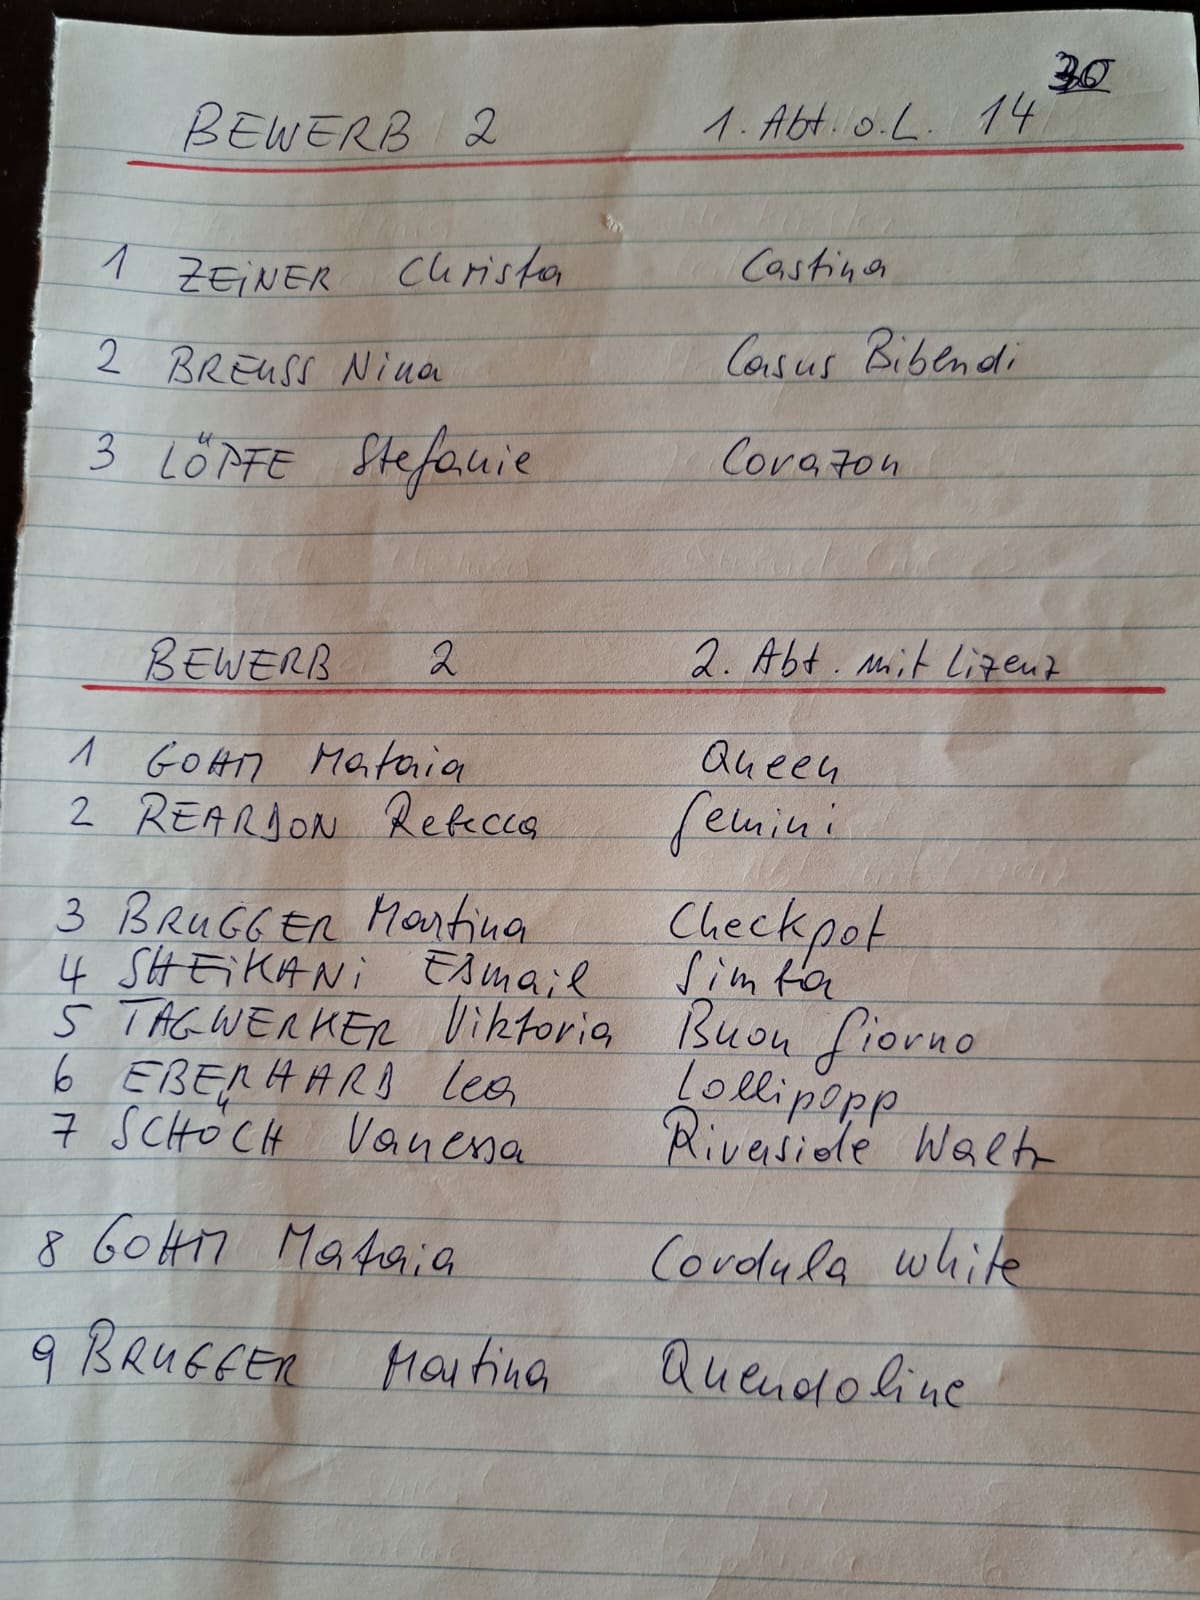 BEWERB 2 1. Abt. o.L. 14 30
1 ZEINER Christa Castina
2 BREUSS Nina Casus Bibendi
3 LÖPFE Stefanie Corazon
BEWERB 2 2. Abt. mit Lizenz
1 GOHM Mataia Queen
2 REARDON Rebecca Gemini
3 BRUGGER Martina Checkpot
4 SHEIKANI Esmail Simba
5 TAGWERKER Viktoria Buon Giorno
6 EBERHARD Lea Lollipopp
7 SCHÖCH Vanessa Riverside Waltz
8 GOHM Mataia Cordula white
9 BRUGGER Martina Quendoline